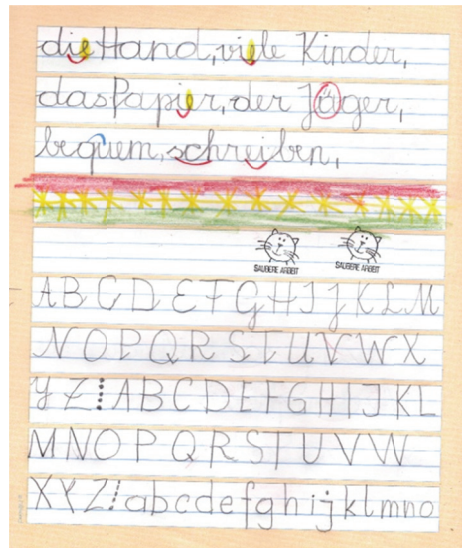 die Hand, viele Kinder,
das Papier, der Jäger,
bequem, schreiben,
SAUBERE ARBEIT SAUBERE ARBEIT
A B C D E F G H I J K L M
N O P Q R S T U V W X
Y Z A B C D E F G H I J K L
M N O P Q R S T U V W
X Y Z a b c d e f g h i j k l m n o